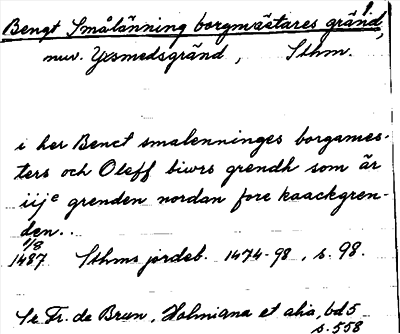 1.
Bengt Smålänning borgmästares gränd,
nuv. Yxsmedsgränd, Sthm.
i her Benct smalenninges borgames-
ters och Oleff biwrs grendh som är
iijc grenden nordan fore kaackgren-
den..
1/8
1487 Sthms jordeb. 1474-98, s. 98.
Se Fr. de Brun, Holmiana et alia, bd 5
s. 558